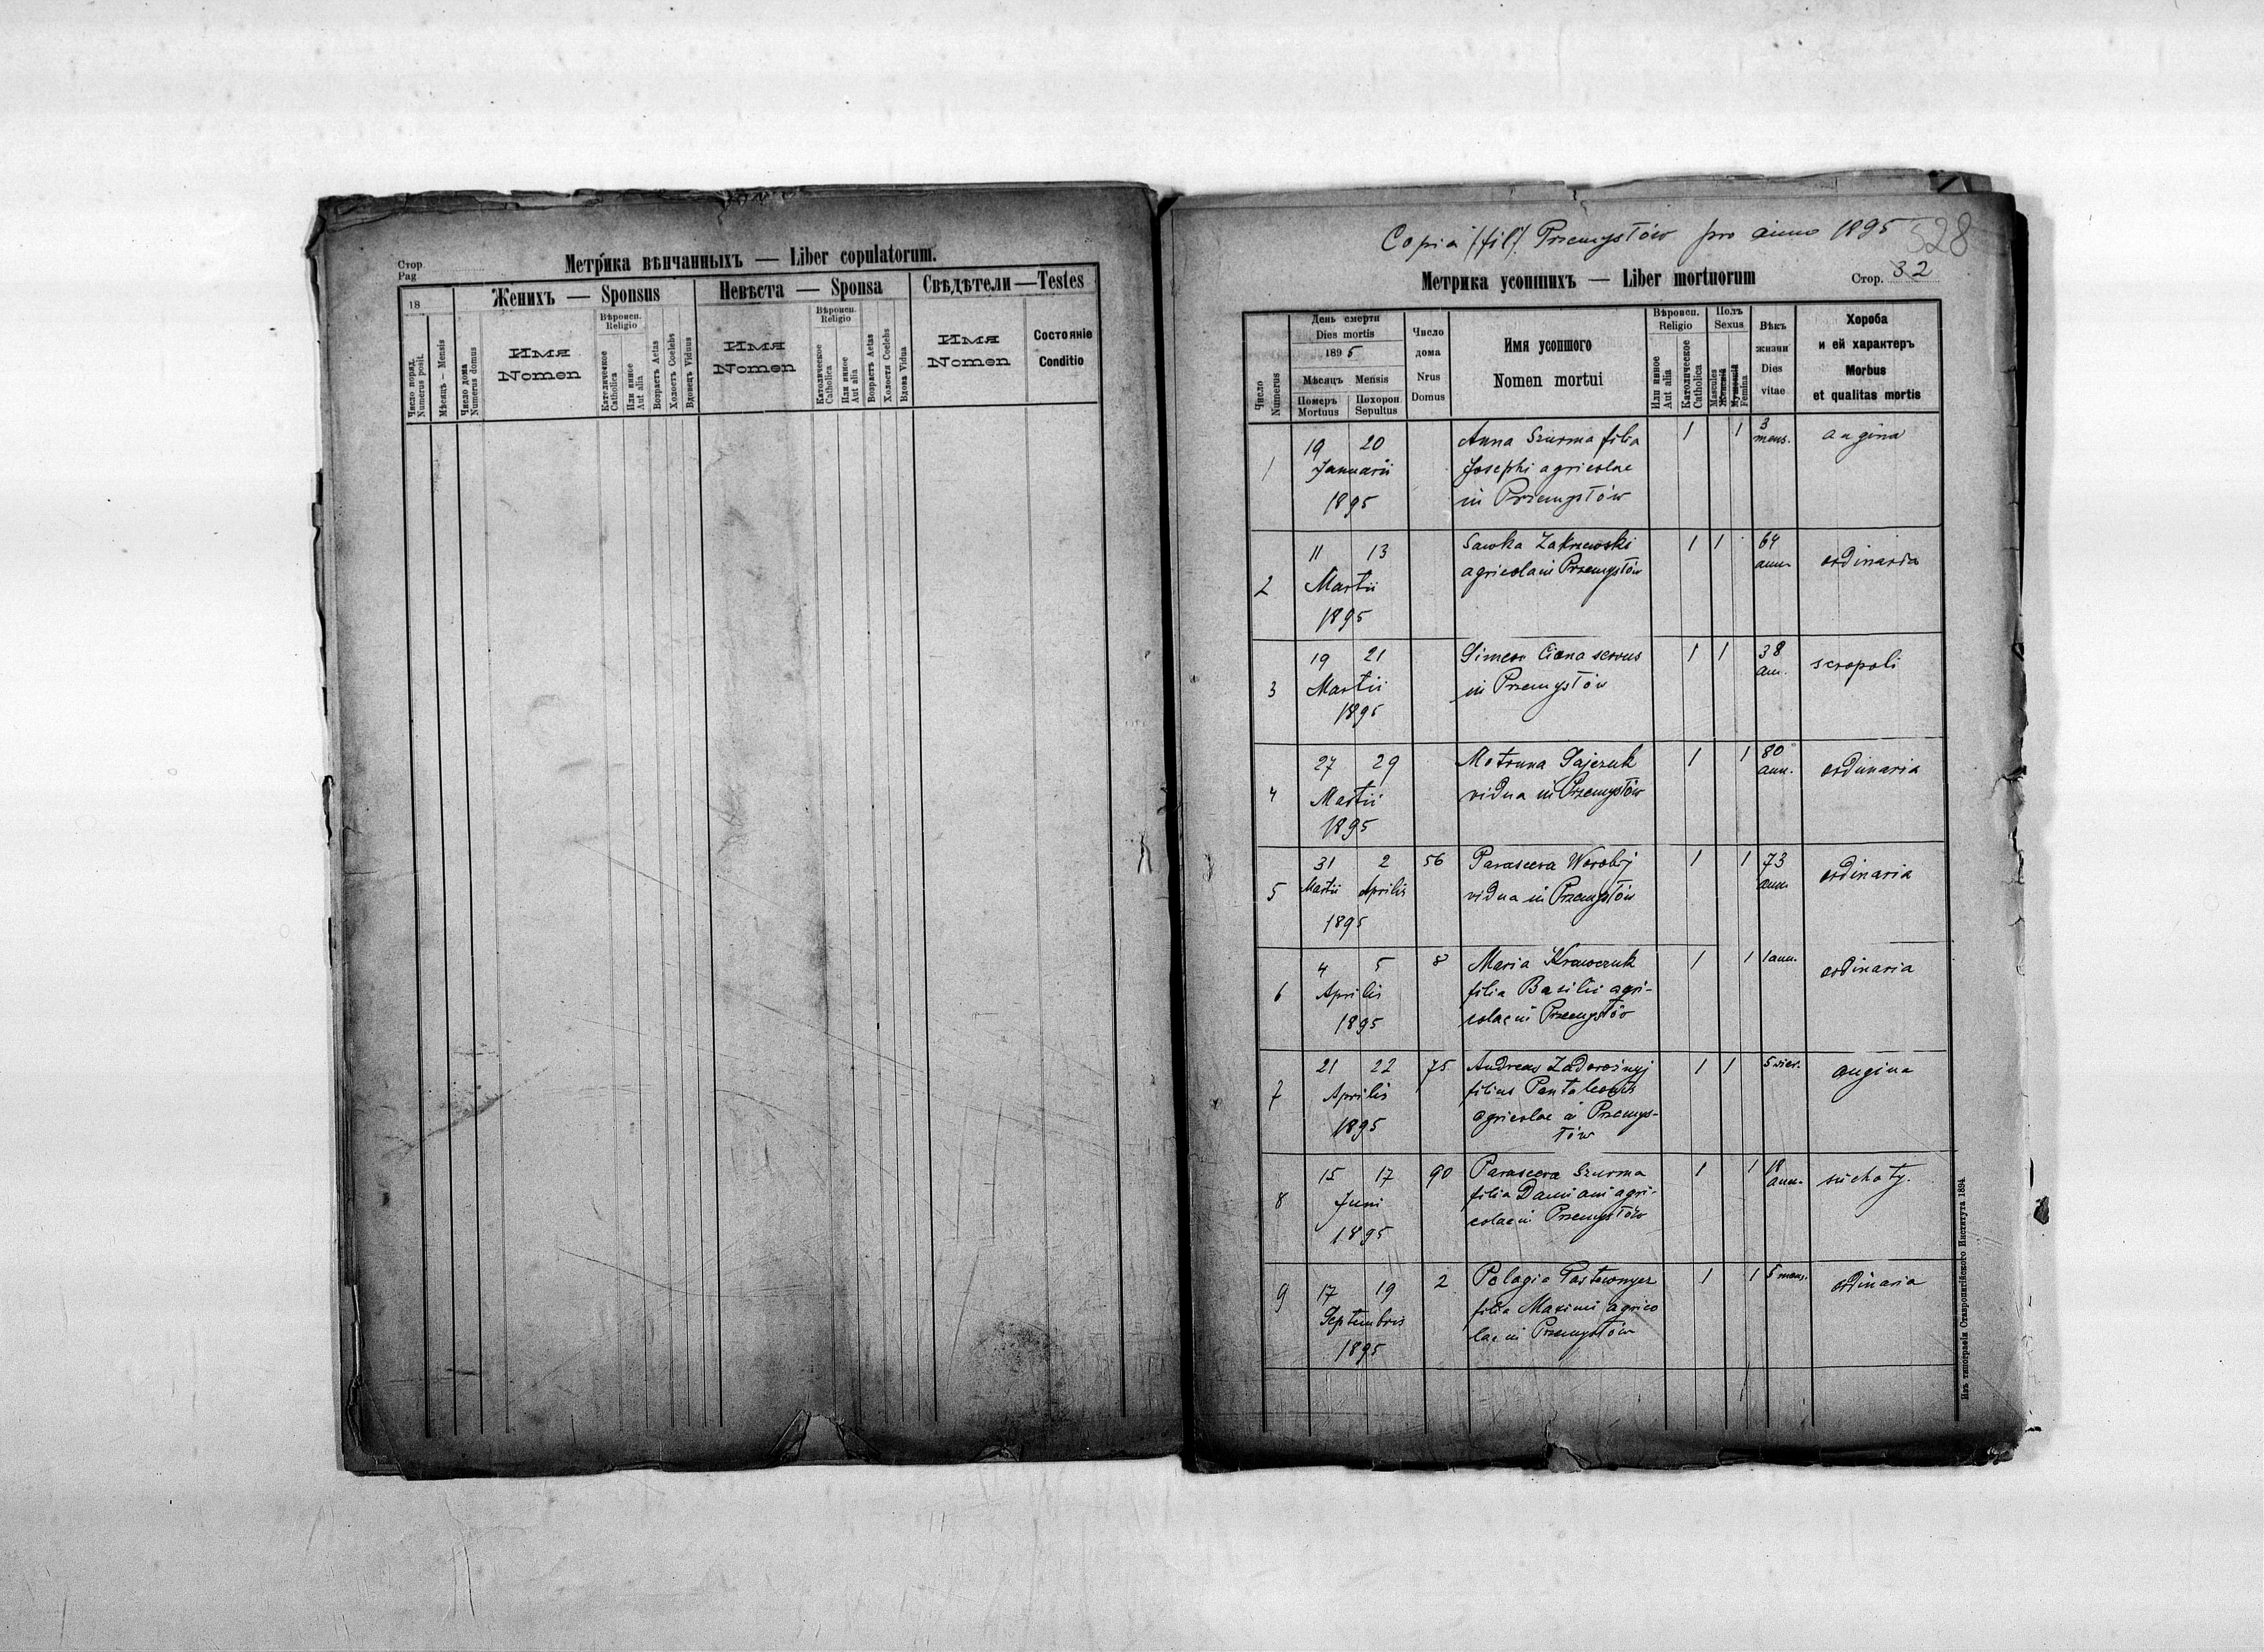 Стор.
Pag
Метрика вѣнчанныхъ — Liber copulatorum.
18
Женихъ — Sponsus
Невѣста — Sponsa
Свѣдѣтели — Testes
Число поряд.
Numerus posit.
Мѣсяцъ — Mensis
Число дома
Numerus domus
Имя
Nomen
Вѣроисп.
Religio
Католическое
Catholica
Или иное
Aut alia
Возрастъ Aetas
Холостъ Coelebs
Вдовецъ Viduus
Имя
Nomen
Вѣроисп.
Religio
Католическое
Catholica
Или иное
Aut alia
Возрастъ Aetas
Холостя Coelebs
Вдова Vidua
Имя
Nomen
Состояніе
Conditio
Copia (fil.) Przemysłów pro anno 1895
528
Метрика усопшихъ — Liber mortuorum
Стор. 32
Число
Numerus
День смерти
Dies mortis
1895
Мѣсяцъ Mensis
Померъ
Mortuus
Похорон.
Sepultus
Число
дома
Nrus
Domus
Имя усопшого
Nomen mortui
Вѣроисп.
Religio
Или иное
Aut alia
Католическое
Catholica
Полъ
Sexus
Mascules
Женскій
Мужескій
Femina
Вѣкъ
жизни
Dies
vitae
Хороба
и ей характеръ
Morbus
et qualitas mortis
1 19 20 Anna Szurma filia 1 1 3 mens. angina
Januarii Josephi agricolae
1895 in Przemysłów
2 11 13 Sawka Zakrzewski 1 1 64 ann. ordinaria
Martii agricola in Przemysłów
1895
3 19 21 Simeon Ciona servus 1 1 38 ann. scropoli
Martii in Przemysłów
1895
4 27 29 Motruna Gajczuk 1 1 80 ann. ordinaria
Martii vidua in Przemysłów
1895
5 31 2 56 Parasceva Worobij 1 1 73 ann. ordinaria
Martii Aprilis vidua in Przemysłów
1895
6 4 5 8 Maria Krawczuk 1 1 1 ann. ordinaria
Aprilis filia Basilii agri-
1895 colae in Przemysłów
7 21 22 75 Andreas Zadorożnyj 1 1 5 angina
Aprilis filius Pantaleonis
1895 agricolae in Przemys-
łów
8 15 17 90 Parasceva Szurma 1 1 18 ann. suchoty.
Juni filia Damiani agri-
1895 colae in Przemysłów
9 17 19 2 Pelagia 1 1 5 mens. ordinaria
Septembris filia Maximi agrico
1895 lae in Przemysłów
Изъ типографіи Ставропигійского Института 1894.